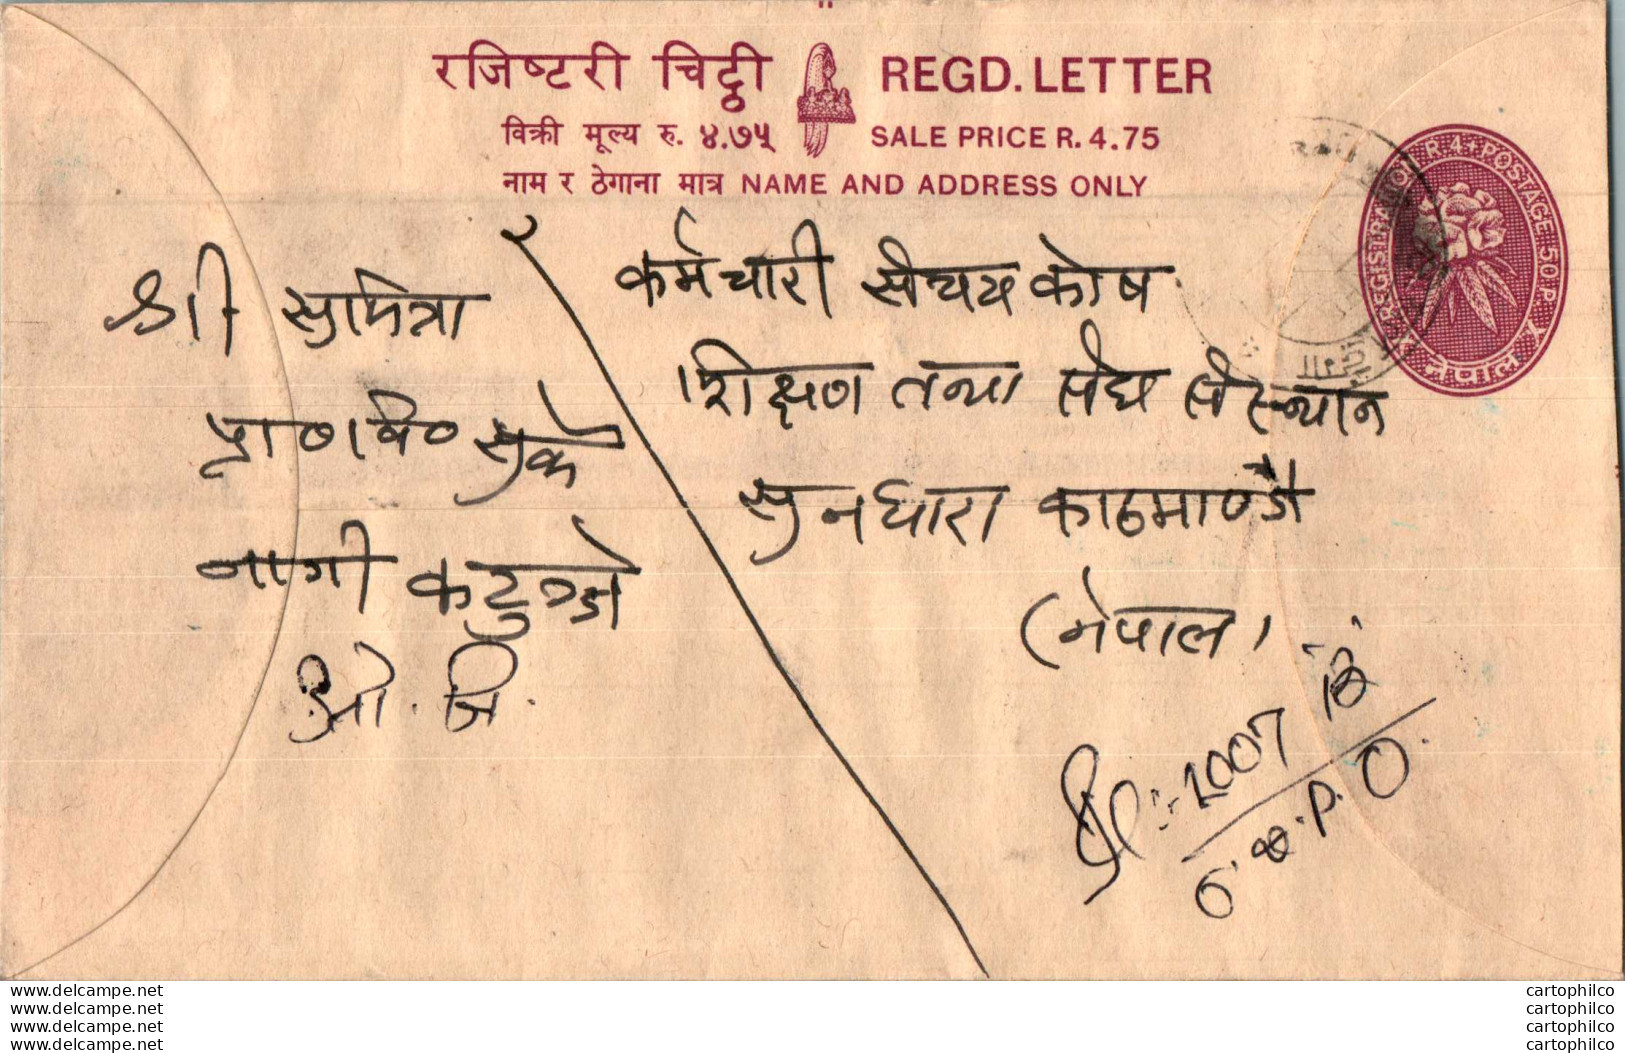 रजिष्टरी चिट्ठी REGD. LETTER
विक्री मूल्य रु. ४.७५ SALE PRICE R. 4.75
नाम र ठेगाना मात्र NAME AND ADDRESS ONLY
REGISTRATION R 4 + POSTAGE 50 P.
नेपाल
श्री सुमित्रा
सुर्के
नागी कटुन्जे
ओ. जि.
कर्मचारी संचय कोष
शिक्षण तथा संघ संस्थान
सुनधारा काठमाण्डौ
(नेपाल)
1007
P. O.
www.delcampe.net
www.delcampe.net
www.delcampe.net
www.delcampe.net
cartophilco
cartophilco
cartophilco
cartophilco